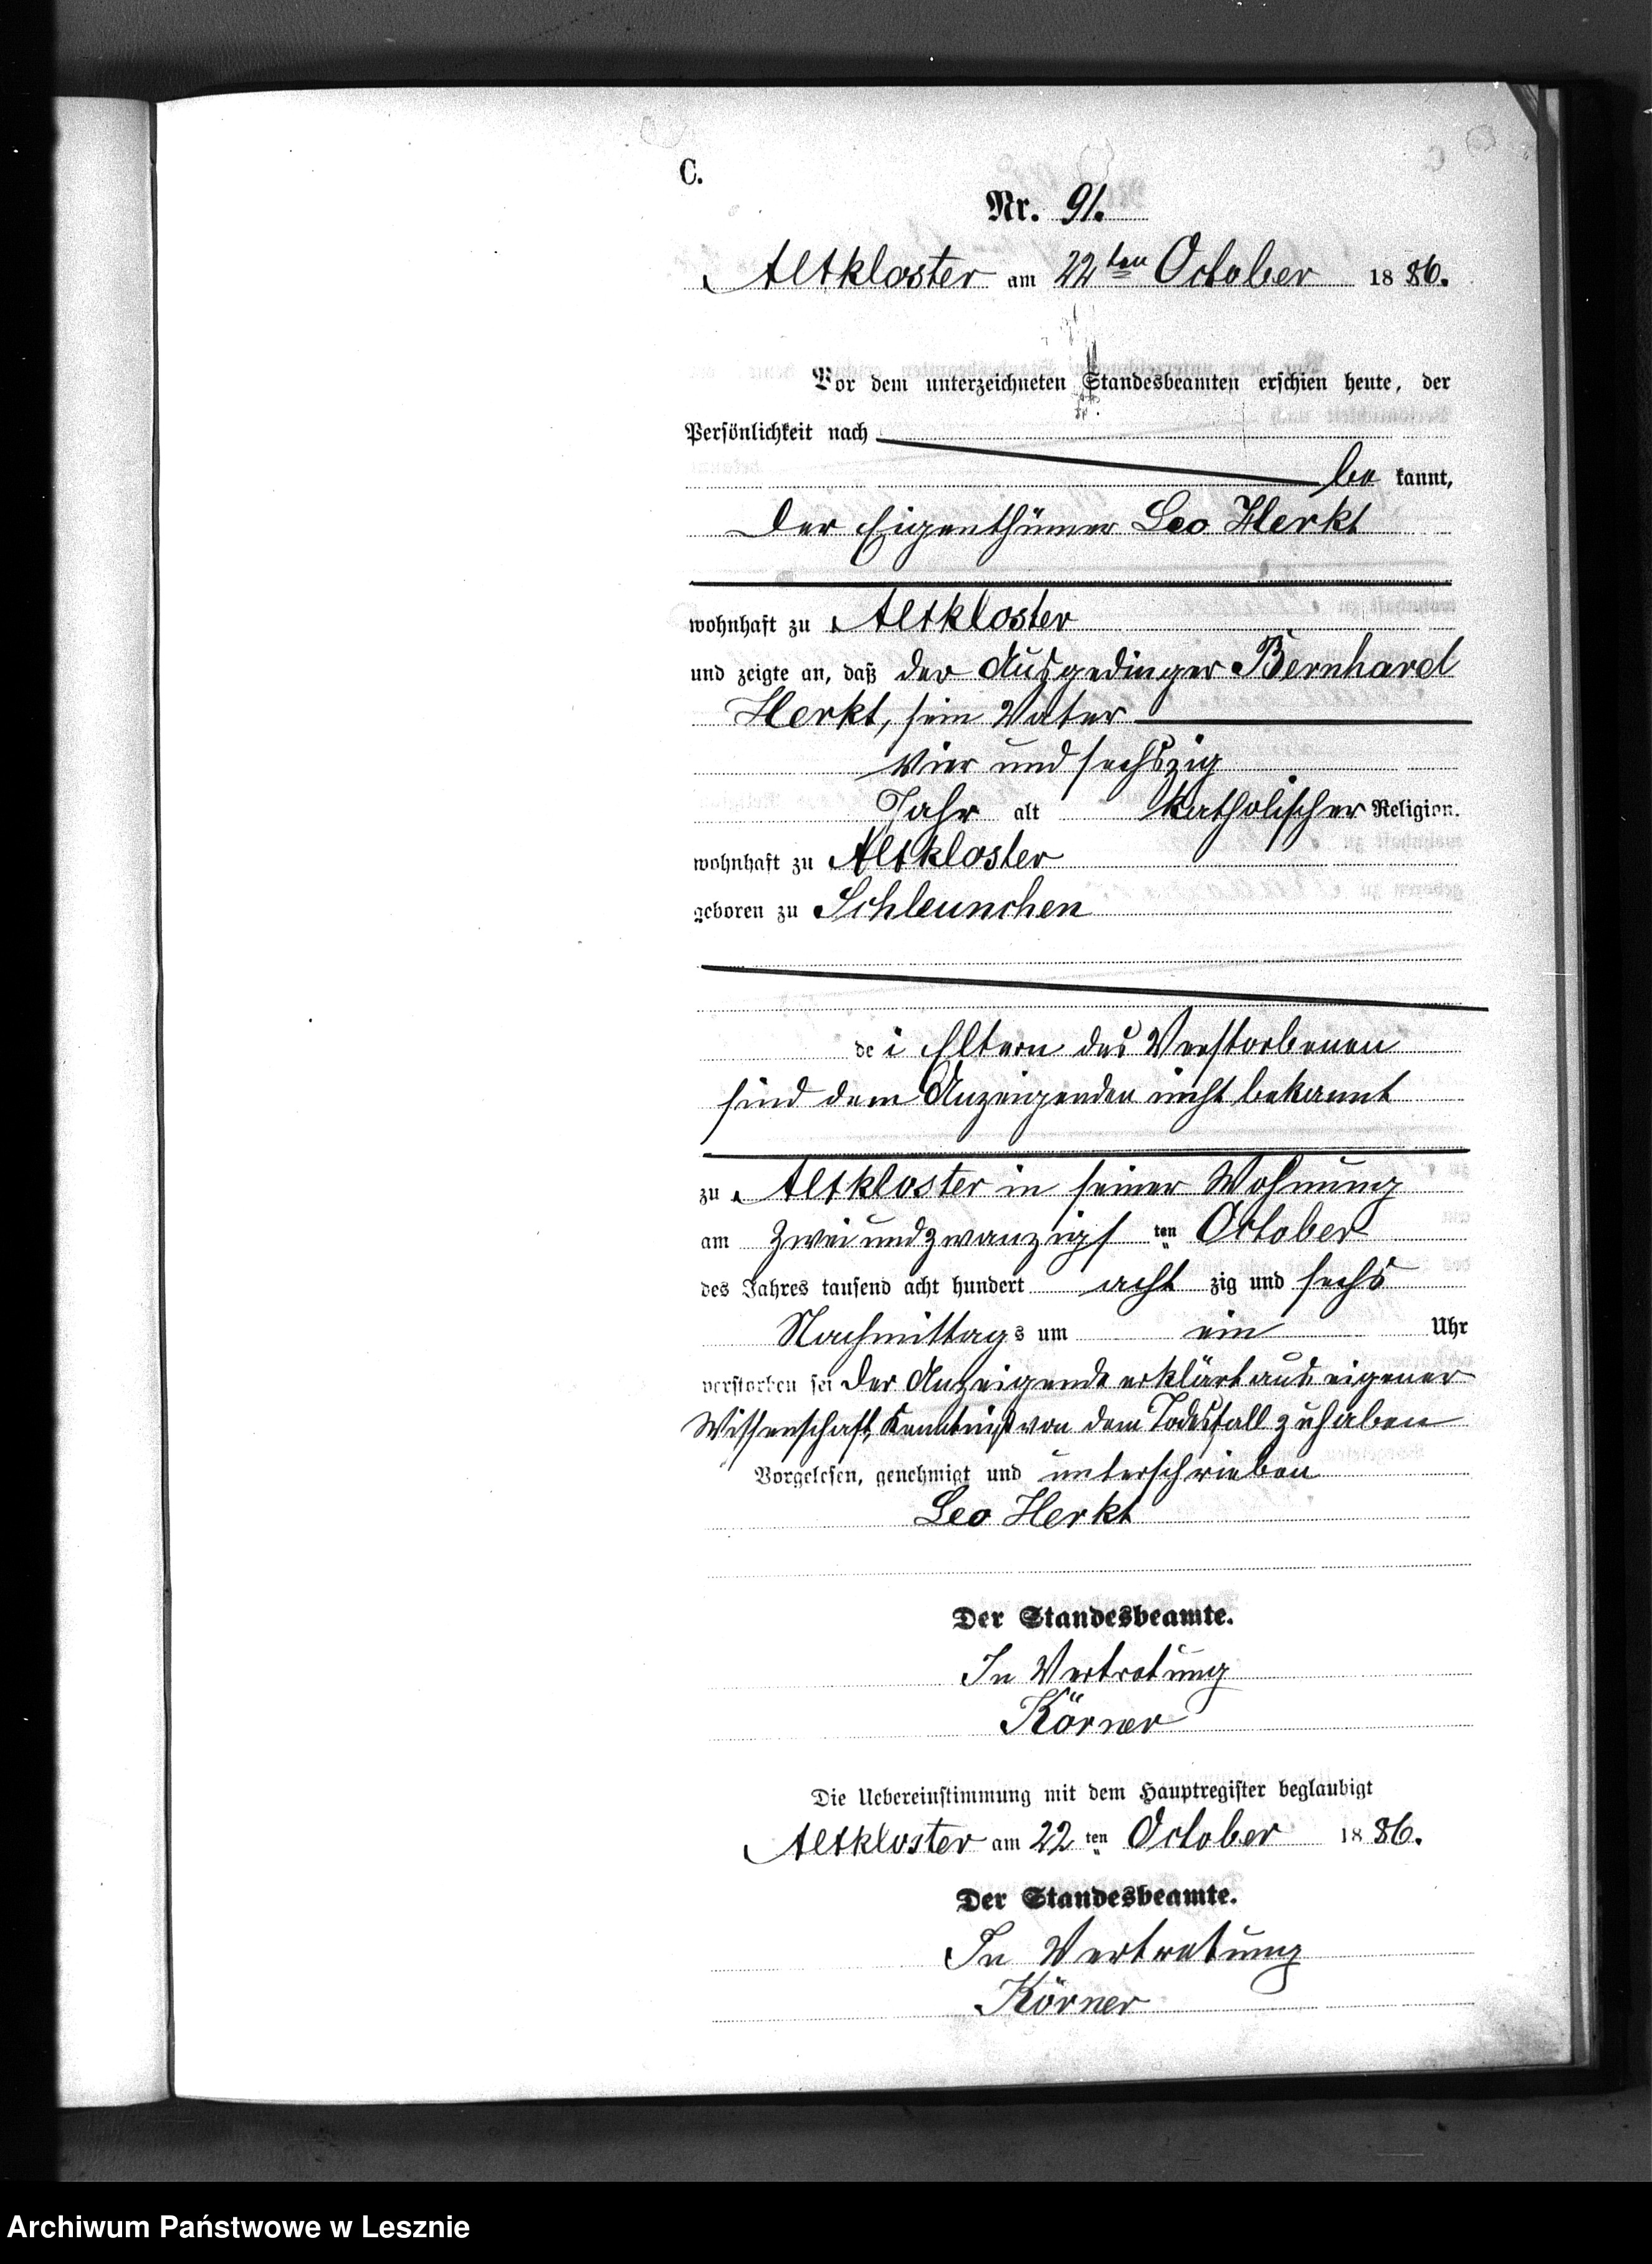 C.
Nr. 91.
Altkloster am 22ten October 1886.
Vor dem unterzeichneten Standesbeamten erschien heute, der
Persönlichkeit nach
be kannt,
der Eigenthümer Leo Herkt
wohnhaft zu Altkloster
und zeigte an, daß der Ausgedinger Bernhard
Herkt, sein Vater
vier und sechszig
Jahr alt katholischer Religion.
wohnhaft zu Altkloster
geboren zu Schleunchen
dei Eltern des Verstorbenen
sind dem Anzeigenden nicht bekannt
zu Altkloster in seiner Wohnung
am zweiundzwanzigsten October
des Jahres tausend acht hundert acht zig und sechs
Nachmittags um ein Uhr
verstorben sei der Anzeigende erklärt aus eigener
Wissenschaft, Kenntniß von dem Todesfall zu haben
Vorgelesen, genehmigt und unterschrieben
Leo Herkt
Der Standesbeamte.
In Vertretung
Körner
Die Uebereinstimmung mit dem Hauptregister beglaubigt
Altkloster am 22ten October 1886.
Der Standesbeamte.
In Vertretung
Körner
Archiwum Państwowe w Lesznie